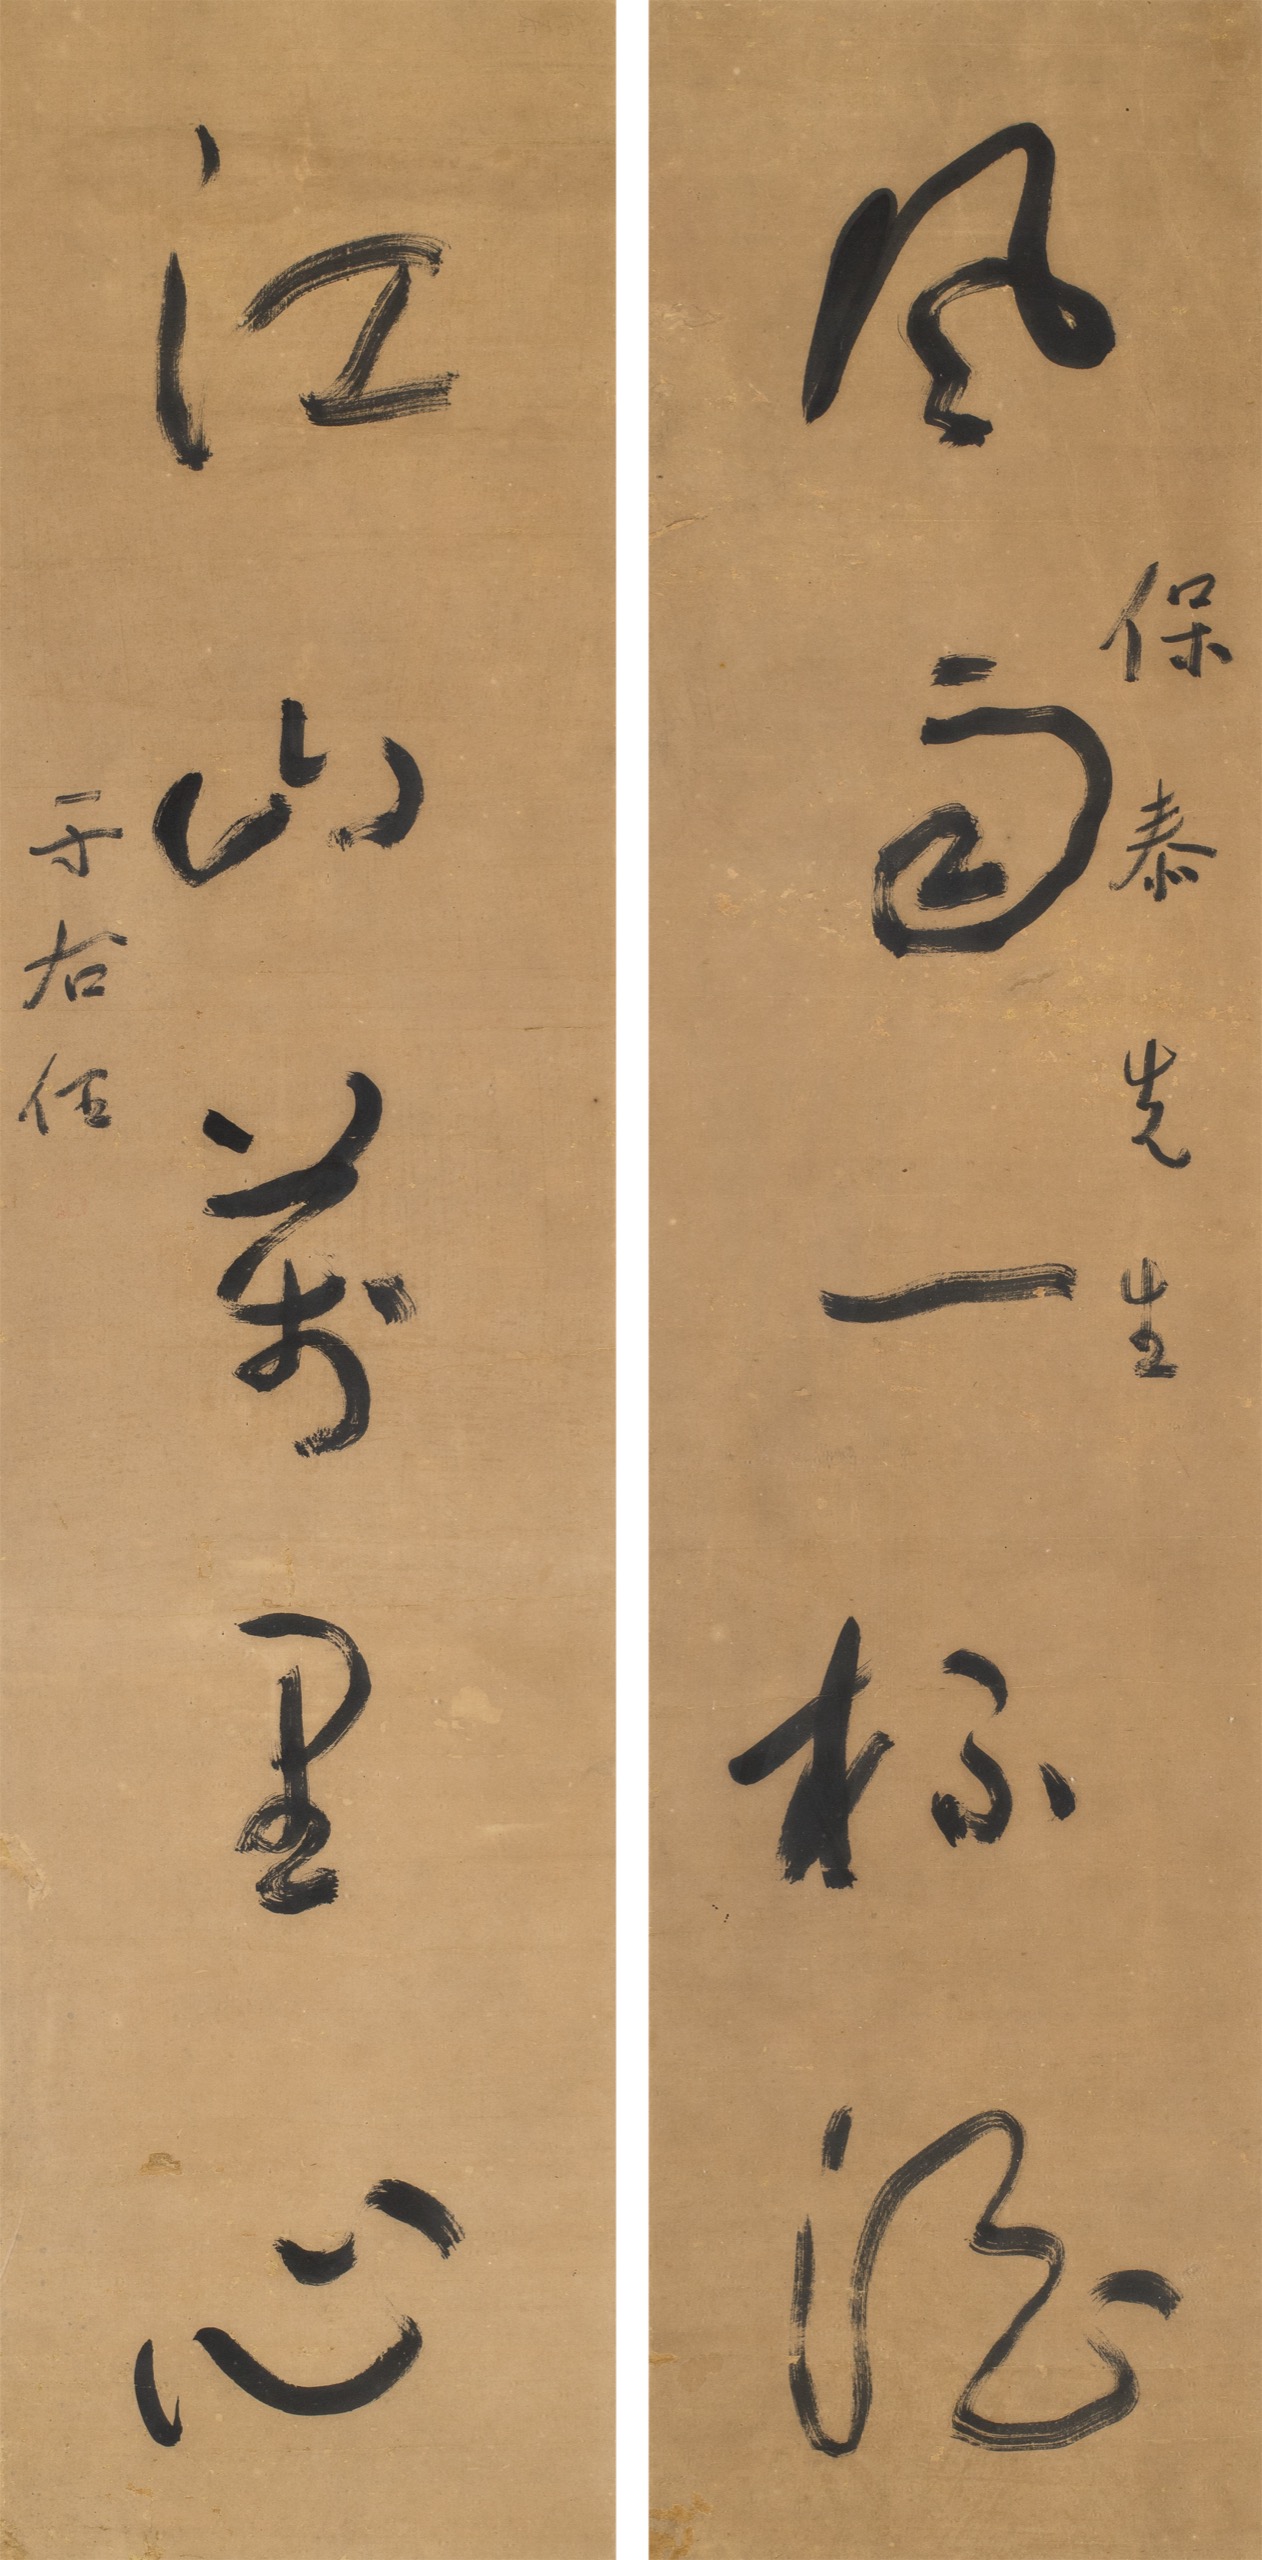 保泰先生
風雨一杯酒
江山萬里心
于右任